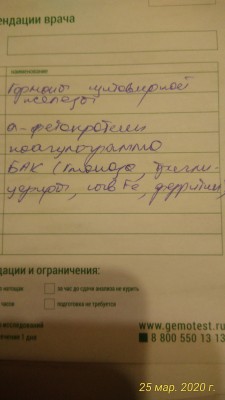 ендации врача
наименование
Гормоны щитовидной
железы
α-фетопротеин
коагулограмма
БАК (глюкоза, тригли-
цериды, сыв Fe, ферритин,
дации и ограничения:
натощак
за час до сдачи анализа не курить
подготовка не требуется
www.gemotest.ru
8 800 550 13 13
25 мар. 2020 г.